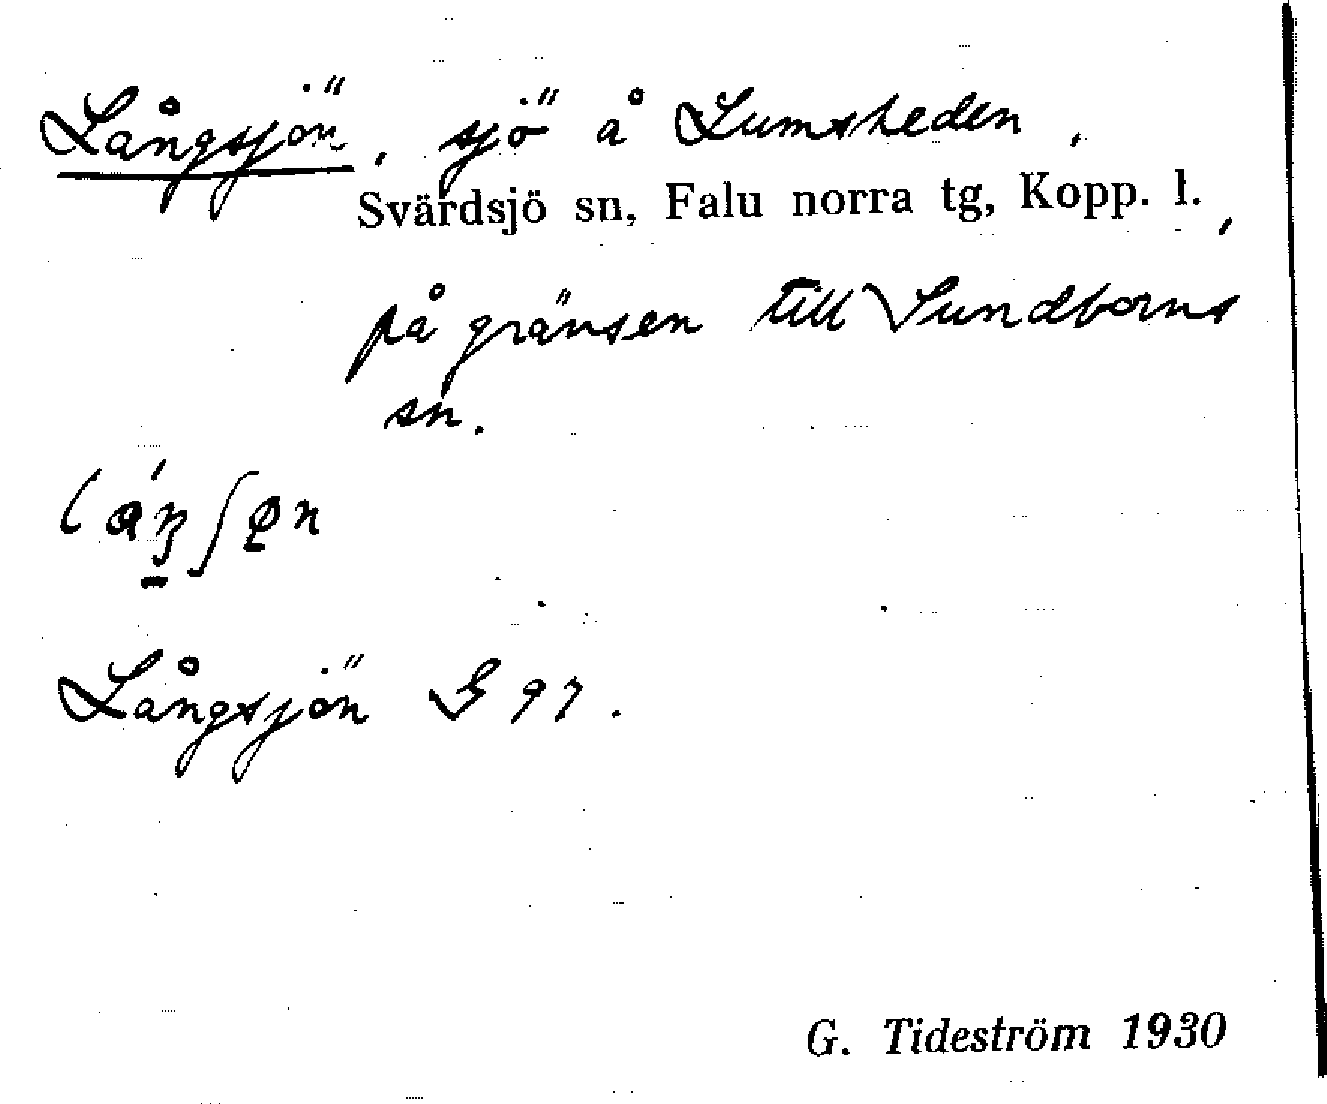 Långsjön, sjö å Lumsheden,
Svärdsjö sn, Falu norra tg, Kopp. l.,
på gränsen till Sundborns
sn.
Långsjön G 97.
G. Tideström 1930